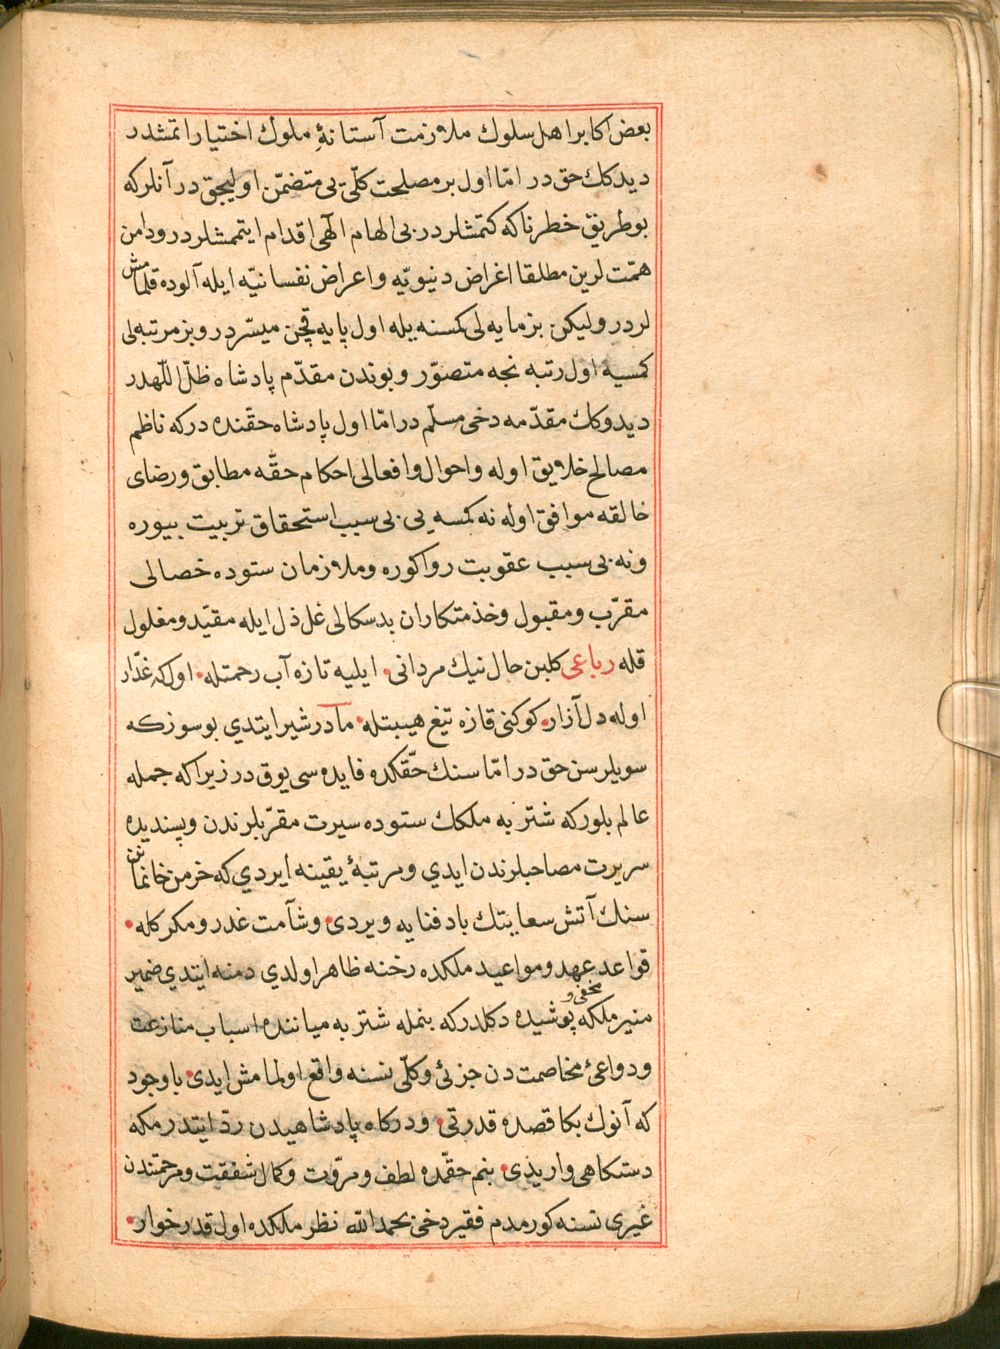 بعض اكابر اهل سلوك ملازمت آستانهٔ ملوك اختيار اتمشدر
ديدكك حق در امّا اول بر مصلحت كلّيّ يى متضمّن اوليجق در آنلر كه
بو طريق خطرناكه كتمشلردر بى الهام الٓهى اقدام ايتممشلردر ودامن
همّت لرين مطلقا اغراض دنيويّه واعراض نفسانيّه ايله آلوده قلمامش
لردر وليكن بزمايه لى كمسنه يله اول پايه قچن ميسّردر وبز مرتبه لى
كمسيه اول رتبه نجه متصوّر وبوندن مقدّم پادشاه ظلّ اللّهدر
ديدوكك مقدّمه دخى مسلّم در امّا اول پادشاه حقّنده در كه ناظم
مصالح خلايق اوله واحوال وافعالى احكام حقّه مطابق ورضاى
خالقه موافق اوله نه كمسه يى بى سبب استحقاق تربيت بيوره
ونه بى سبب عقوبت روا كوره وملازمان ستوده خصالى
مقرّب ومقبول وخذمتكاران بدسكالى غل ذل ايله مقيّد ومغلول
قله رباعى كلبن حال نيك مردانى • ايليه تازه آب رحمتله • اول كه غدّار
اوله دل آزار • كوكنى قازه تيغ هيبتله • مادر شير ايتدي بو سوز كه
سويلرسن حق در امّا سنك حقّكده فايده سى يوق در زيرا كه جمله
عالم بلور كه شتربه ملكك ستوده سيرت مقرّبلرندن وپسنديده
سريرت مصاحبلرندن ايدي ومرتبهٔ يقينه ايردي كه خرمن خانماننن
سنك آتش سعايتك باد فنايه ويردى • وشآمت غدر ومكر كله •
قواعد عهد ومواعيد ملكده رخنه ظاهر اولدي دمنه ايتدي ضمير
منير ملكه مخفى و پوشيده دكلدر كه بنمله شتربه مياننده اسباب منازعت
ودواعئ مخاصمت دن جزئى وكلّى نسنه واقع اولمامش ايدى • باوجود
كه آنوك بكا قصده قدرتى • ودركاه پادشاهيدن ردّ ايتدرمكه
دستكاهى وار يدى • بنم حقّمده لطف ومروّت وكمال شفقت ومرحمتندن
غيرى نسنه كورمدم فقير دخى بحمد الله نظر ملكده اول قدر خوار •